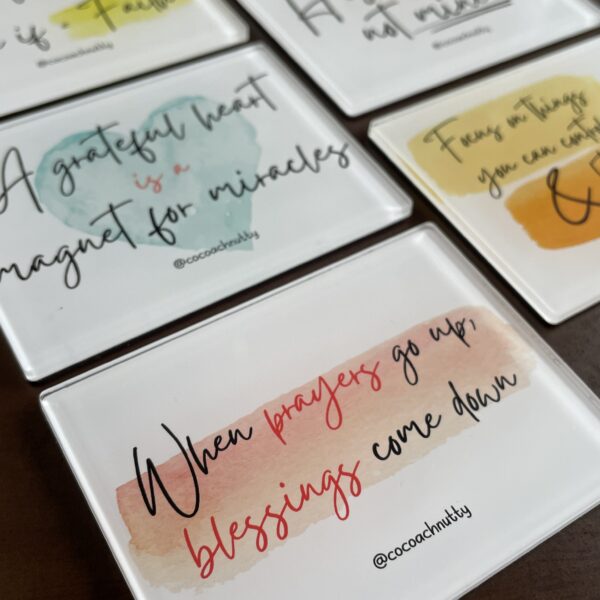 if - Faith
@cocoachnutty
not mine
A grateful heart
is a
magnet for miracles
@cocoachnutty
Focus on things
you can
&
When prayers go up,
blessings come down
@cocoachnutty